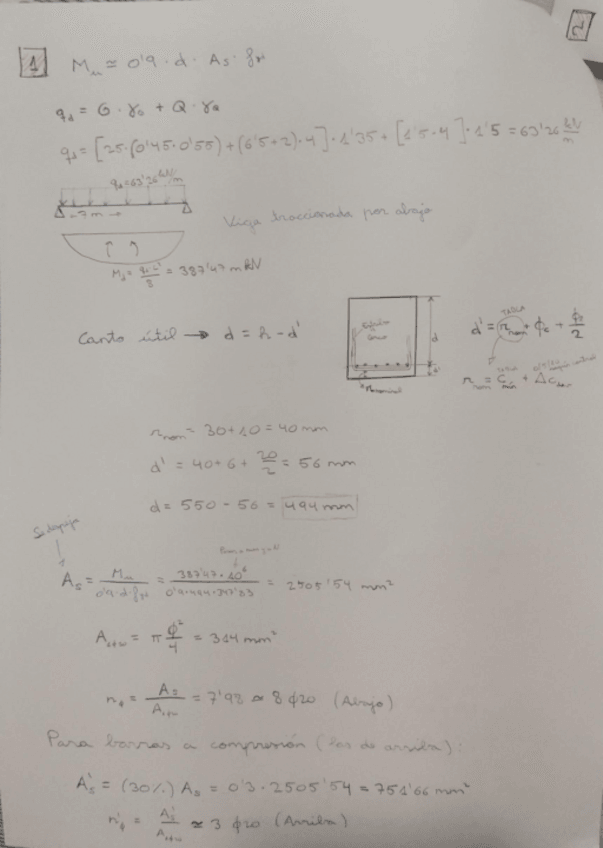 2
1 M_u ≃ 0'9 · d · A_s · f_yd
q_d = G · γ_G + Q · γ_Q
q_d = [25·(0'45·0'55)+(6'5+2)·4]·1'35+[1'5·4]·1'5 = 63'26 kN/m
q_d=63'26 kN/m
7m
Viga traccionada por abajo
M_d = q·l²/8 = 387'47 mkN
Canto útil → d = h - d'
d
d'
r nominal
TABLA
d' = r_nom + ϕ_c + ϕ_l/2
TABLA
r_nom = C_mín + ΔC_dev
r_nom = 30+10 = 40 mm
d' = 40+6+ 20/2 = 56 mm
d = 550 - 56 = 494 mm
Se despeja
A_s = M_u/(0'9·d·f_yd) = 387'47·10⁶/(0'9·494·347'83) = 2505'54 mm²
= π ϕ²/4 = 314 mm²
n_ϕ = A_s = 7'98 ≃ 8 ϕ20 (Abajo)
Para barras a compresión (las de arriba):
A's = (30%) A_s = 0'3 · 2505'54 = 751'66 mm²
n'_ϕ = A's ≃ 3 ϕ20 (Arriba)